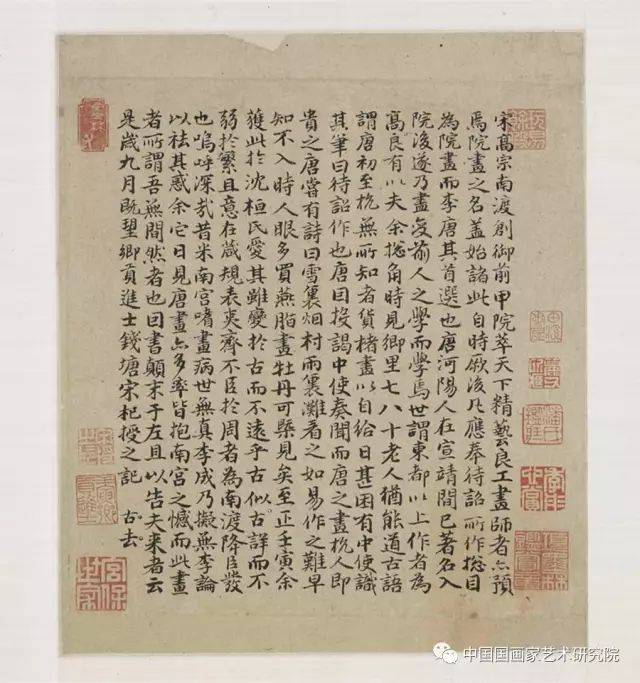 宋髙宗南渡創御前甲院萃天下精藝良工畫師者亦預
焉院畫之名蓋始諸此自時厥後凡應奉待詔所作捴目
為院畫而李唐其首選也唐河陽人在宣靖間已著名入
院後遂乃盡變前人之學而學焉世謂東都以上作者為
髙良有以夫余捴角時見鄉里七八十老人猶能道古語
謂唐初至杭無所知者貨楮畫以自給日甚困有中使識
其筆曰待詔作也唐因投謁中使奏聞而唐之畫杭人即
貴之唐嘗有詩曰雪裏烟村雨裏灘看之如易作之難早
知不入時人眼多買燕脂畫牡丹可槩見矣至正壬寅余
獲此於沈桓氏愛其雖變於古而不遠乎古似古詳而不
弱於繁且意在葴規表夷齊不臣於周者為南渡降臣發
也嗚呼深哉昔米南宫嗜畫病世無真李成乃擬無李論
以祛其惑余它日見唐畫亦多率皆抱南宫之憾而此畫
者所謂吾無間然者也因書顛末于左且以告夫来者云
是歲九月既望鄉貢進士錢塘宋杞授之記 古去
宫保世家
中国国画家艺术研究院